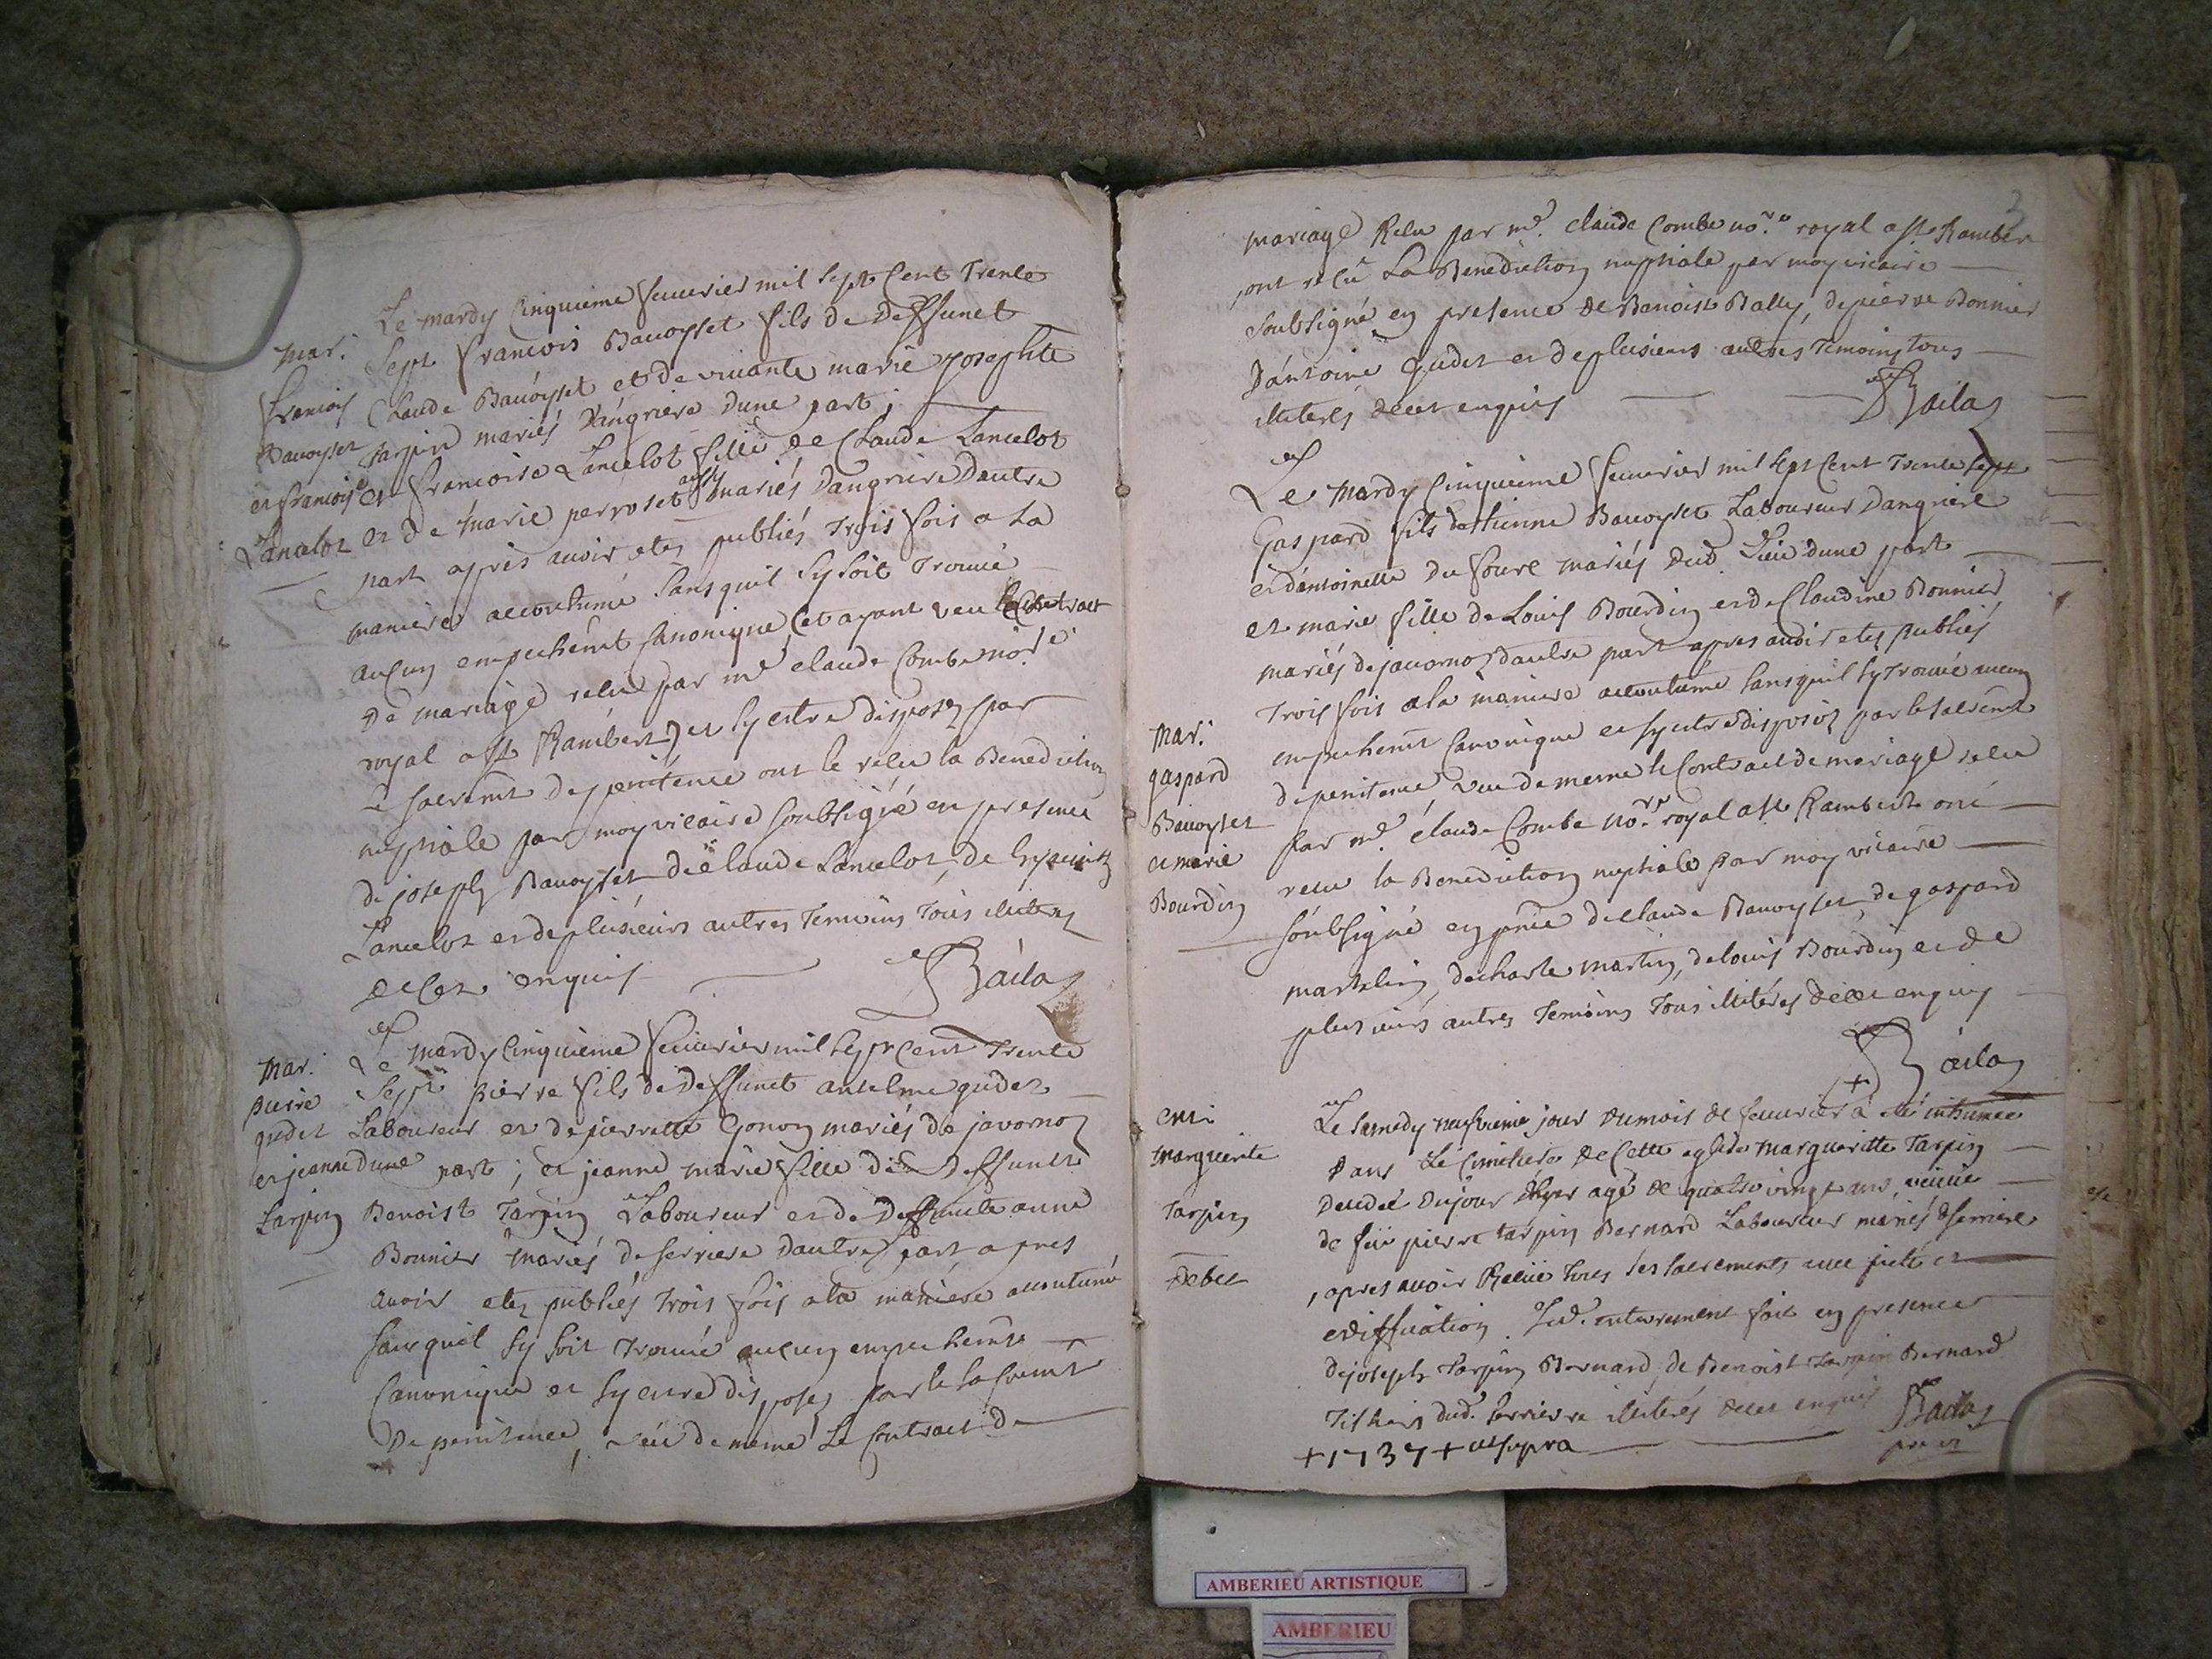 Mar.
francois
Bauoyset
et francoise
Lancelot
Le mardy Cinquieme feuurier mil sept Cent Trente
Sept francois Bauoyset fils de deffunct
Claude Bauoyset et de viuante marie josephte
Tarpin mariés dangriere dune part,
et francoise Lancelot fille de Claude Lancelot
et de marie perroset aussy mariés dangriere dautre
part apres auoir etes publiés trois fois a la
maniere accoutumé sans quil sy soit trouué
aucun empechemt Canonique (et ayant veu le Contract
de mariage receu par me claude Combe nore
royal a st Rambert) et sy estre disposez par
le sacremt de penitence ont le receu la Benediction
nuptiale par moy vicaire soubsigné en presence
de joseph Bauoyset de claude Lancelot, de
Lancelot et de plusieurs autres temoins tous illiteres
de ce enquis Bailaz
Mar.
pierre
gudet
et jeanne
tarpin
Le mardy Cinquieme feuurier mil sept Cent Trente
Sept pierre fils de deffunct anselme gudet
Laboureur et de pierrette Gonon mariés de javornoz
dune part; et jeanne marie fille de deffunct
Benoist Tarpin Laboureur et de deffuncte anne
Bonnier mariés de serriere dautre part apres
auoir etez publiés trois fois a la maniere acoutumé
sans quil sy soit trouué aucun empechemt
Canonique et sy estre disposez par le sacremt
de penitence, veu de meme le Contract de
mariage Receu par me. claude Combe nore royal a st Rambert
ont reçu La Benediction nuptiale par moy vicaire
soubsigné en presence de Benoist Bally, de pierre Bonnier
d'antoine gudet et de plusieurs autres temoins tous
illiterés de ce enquis Bailaz
Mar.
gaspard
Bauoyset
et marie
Bourdin
Le Mardy Cinquieme feuurier mil sept Cent Trente sept
Gaspard fils detienne Bauoyset Laboureur dangriere
et dantoinette du foure mariés dud. Lieu dune part
et marie fille de Louis Bourdin et de Claudine Bonnier
mariés de javornoz dautre part apres auoir etes publiés
trois fois a la maniere accoutumé sans quil sy trouué aucun
empechemt Canonique et sy estre disposéz par le sacremt
de penitence, veu de meme le Contract de mariage receu
par me. claude Combe nore royal a st Rambert ont
receu la Benediction nuptiale par moy vicaire
soubsigné en pnce de claude Bauoyset, de gaspard
martelin, de charle martin, de louis Bourdin et de
plusieurs autres temoins tous illiterés de ce enquis
Bailaz
enter.
marguerite
Tarpin
Debet
Le samedy neufvieme jour du mois de feuurier + a eté inhumée
dans Le Cimetiere de Cette eglise margueritte Tarpin
decedeé du jour dhyer agé de quatre vingt ans, veuue
de feu pierre tarpin Bernard Laboureur mariés de serriere
, apres auoir Receue tous les sacrements auec pieté et
ediffication. Led. enterrement fait en presence
de joseph Tarpin Bernard, de Benoist Tarpin Bernard
dud. serriere illiterés de ce enquis Bailaz
+ 1737 + ut supra
AMBERIEU ARTISTIQUE
AMBERIEU